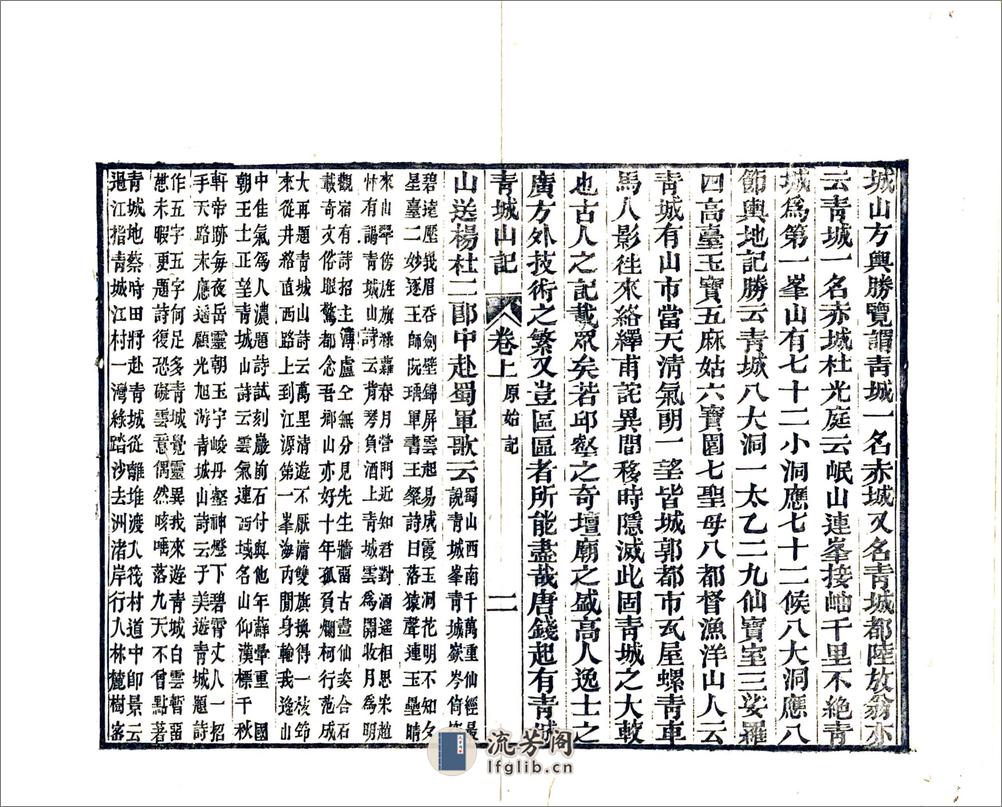 城山方輿勝覽謂青城一名赤城又名青城都陸放翁亦
云青城一名赤城杜光庭云岷山連峯接岫千里不絶青
城爲第一峯山有七十二小洞應七十二候八大洞應八
節輿地記勝云青城八大洞一太乙二九仙寶室三娑羅
四高臺玉寶五麻姑六寶園七聖母八都督漁洋山人云
青城有山市當天清氣朗一望皆城郭都市瓦屋螺青車
馬人影徃來絡繹甫詫異間移時隱滅此固青城之大較
也古人之記載眾矣若邱壑之奇壇廟之盛高人逸士之
廣方外技術之繁又豈區區者所能盡哉唐錢起有青城
青城山記 卷上 原始記 二
山送楊杜二郎中赴蜀軍歌云蜀山西南千萬重仙經最
說青城峯青城嶔岑倚空
碧遠壓峩眉吞劍壁錦屏雲起易成霞玉洞花明不知夕
星臺二妙逐王師阮瑀軍書王粲詩日落猿聲連玉壘晴
來山翠傍旌旗綠蘿春月營門近知君對酒遥相思宋趙
忭有謁青城山詩云背琴負酒上青城雲爲開收月爲明
觀宿有詩招主簿盧仝無分見先生牆畱古畫仙姿合石
載奇文俗眼驚都念吾鄉山亦好十年孤負爛柯行范成
大再題青城山詩云萬里清遊不厭慵雙旗換得一枝筇
來從井絡直西路上到江源第一峯海內閒身輸我逸山
中佳氣爲人濃題詩試刻巖前石付與他年蘚暈重 國
朝王士正望青城山詩云雲氣連西域名山仰漢標千秋
軒帝跡每夜岳靈朝玉宇峻丹壑神燈下碧霄丈人一招
手天路未應遥顧光旭游青城山詩云子美遊青城題詩
作五字五字何足多青城覺靈異我來遊青城白雲暫畱
愁未暇更題詩復恐礙雲意偶然咳唾落九天不曾點著
青城地蔡時田將赴青城從離堆渡人筏村道中卽景云
過江指青城江村一灣綠踏沙去洲渚岸行入林麓樹客
流芳阁
lfglib.cn